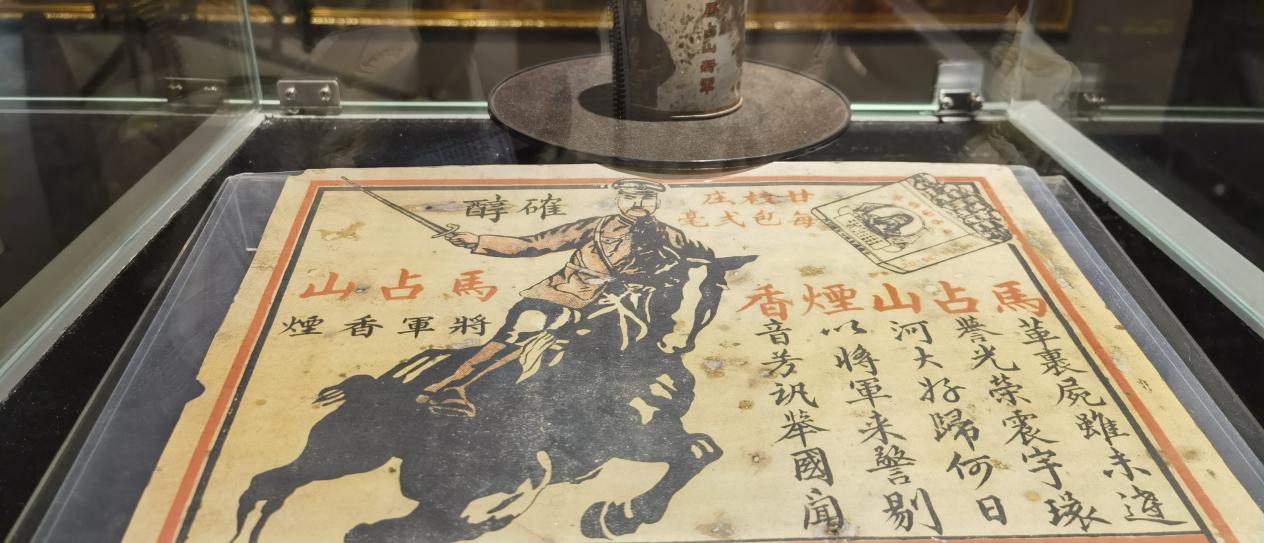 馬占山將軍
確醇
廿枝庄
每包弍毫
馬占山煙香
革裹屍雖未達
譽光荣震宇環
河大好歸何日
以將軍来警剔
音芳訊舉國聞
馬占山
將軍香煙